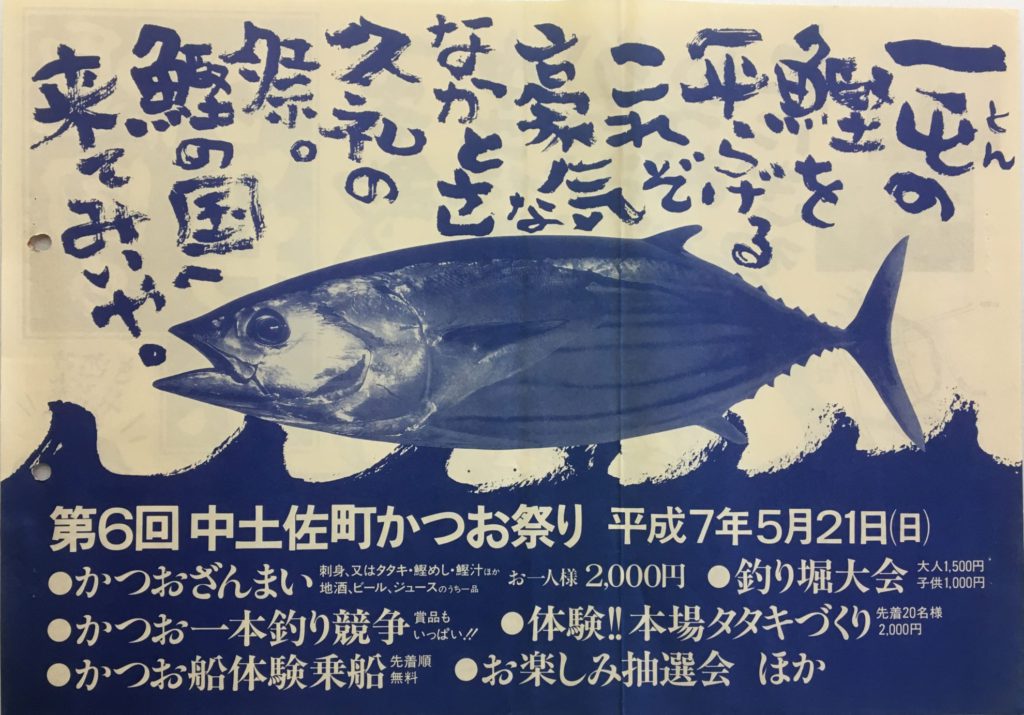 一屯の
とん
鰹を
平らげる
これぞ
豪気な
なかとさ
久礼の
祭。
鰹の国に
来てみいや。
第6回 中土佐町かつお祭り 平成7年5月21日(日)
●かつおざんまい 刺身、又はタタキ・鰹めし・鰹汁ほか 地酒、ビール、ジュースのうち一品 お一人様 2,000円 ●釣り堀大会 大人1,500円 子供1,000円
●かつお一本釣り競争 賞品もいっぱい!! ●体験!! 本場タタキづくり 先着20名様 2,000円
●かつお船体験乗船 先着順 無料 ●お楽しみ抽選会 ほか